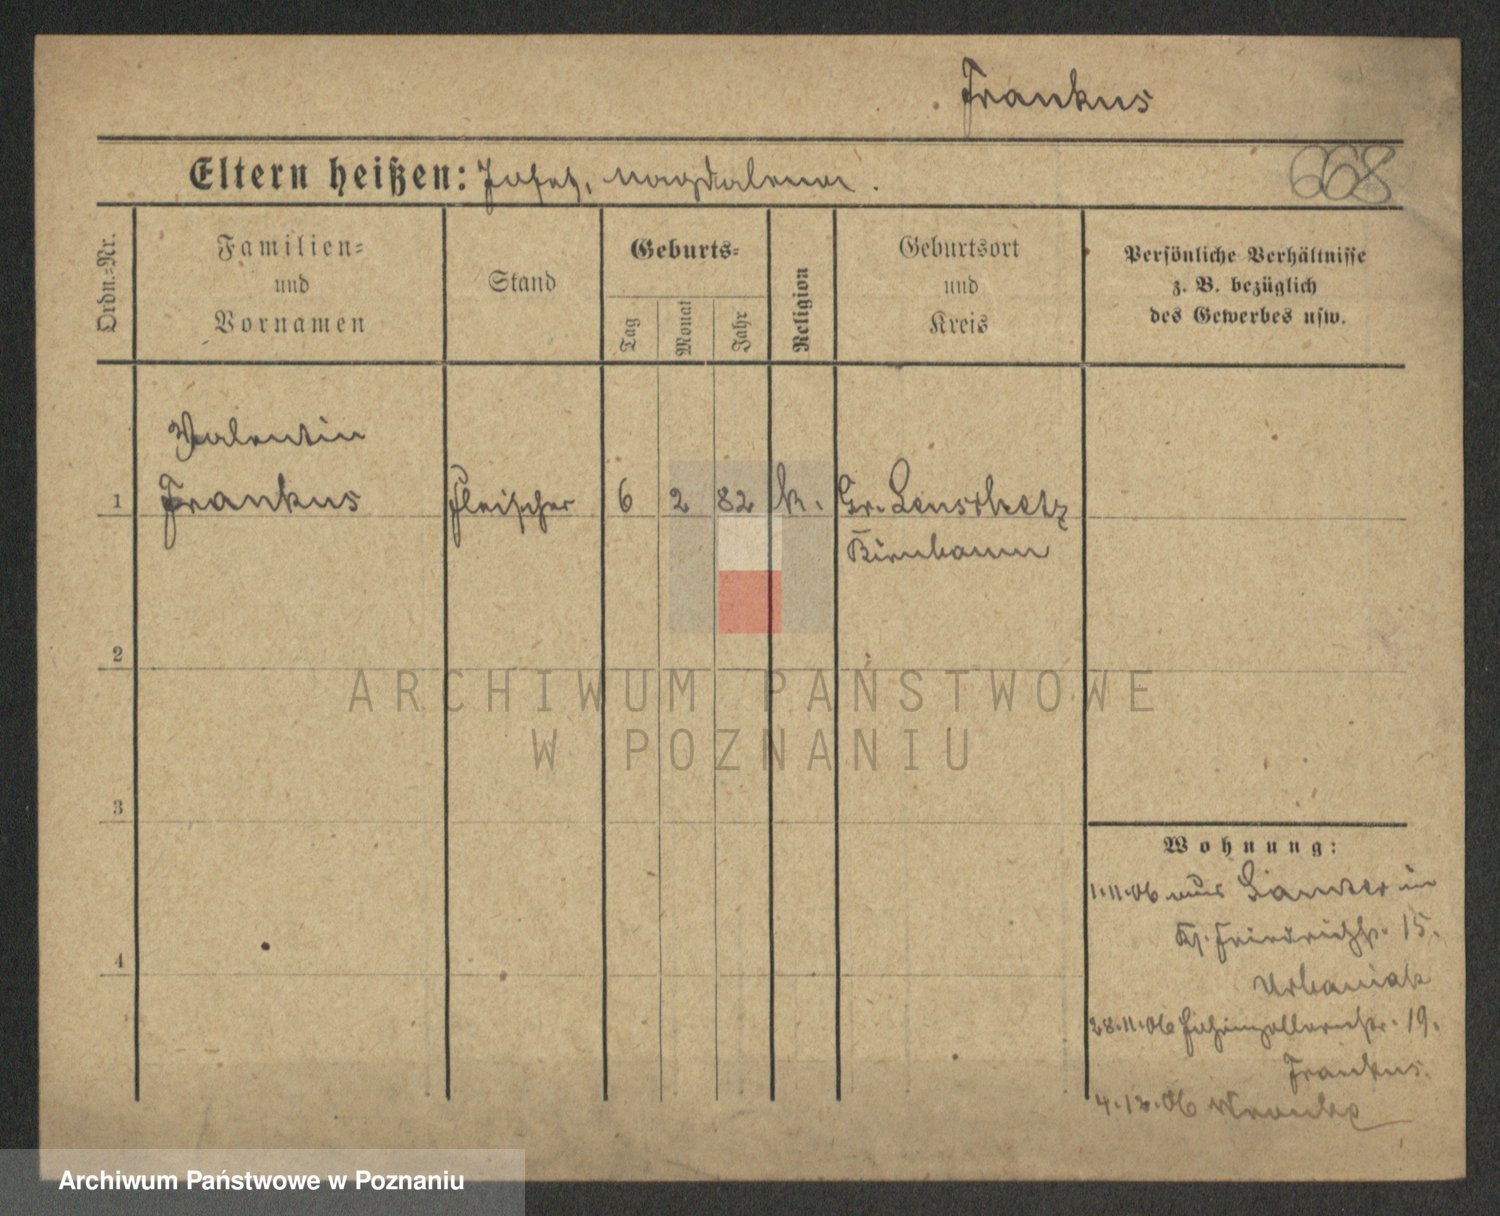 Frankus
Eltern heißen: Josef, Magdalena.
668
Ordn.-Nr.
Familien-
und
Vornamen
Stand
Geburts-
Tag
Monat
Jahr
Religion
Geburtsort
und
Kreis
Persönliche Verhältnisse
z. B. bezüglich
des Gewerbes usw.
Valentin
1 Frankus Fleischer 6 2 82 k. Gr. Lenschetz
Birnbaum
2
3
4
ARCHIWUM PAŃSTWOWE
W POZNANIU
Wohnung:
1.11.06 aus in
Friedrichstr. 15.
Urbaniak
28.11.06 Hohenzollernstr. 19.
Frankus.
4.12.06 Wronke
Archiwum Państwowe w Poznaniu